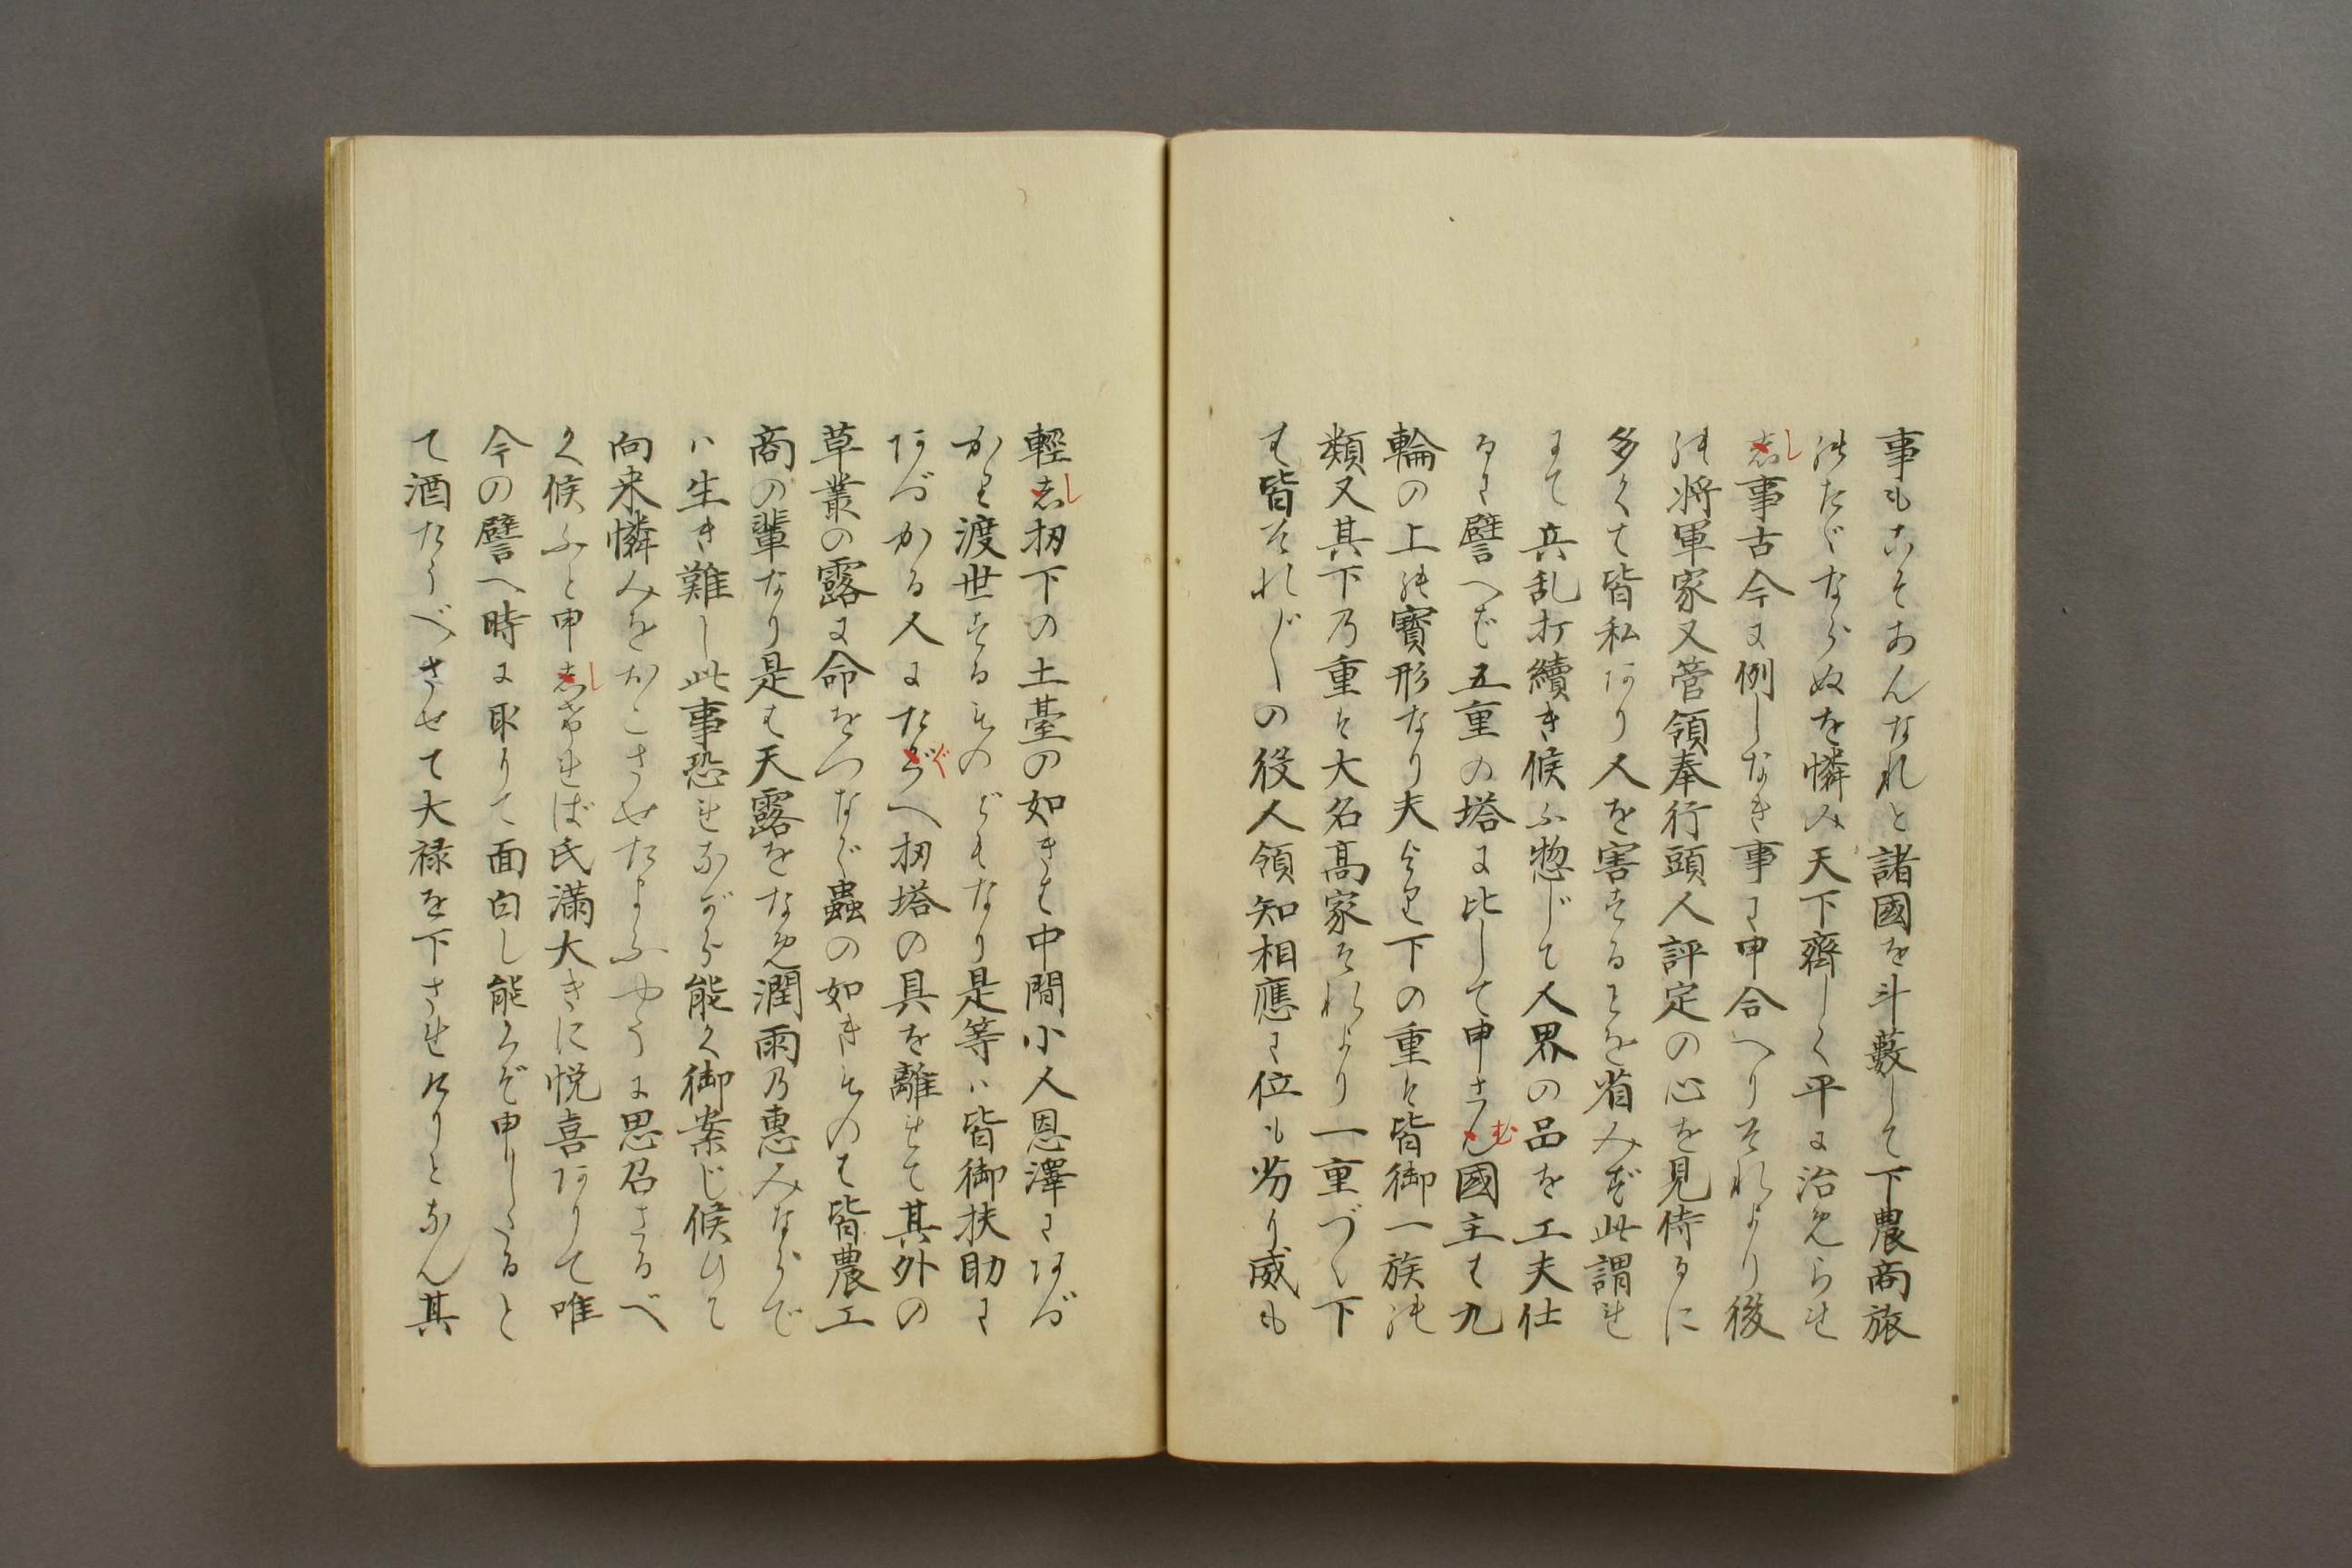 事もこそあんなれと諸國を斗藪して下農商旅
のたゞならぬを憐み天下齊しく平に治めらせ
し事古今に例しなき事に申合へりそれより後
の將軍家又管領奉行頭人評定の心を見侍るに
多くて皆私あり人を害することを省みず此謂れ
にて兵乱打續き候ふ惣じて人界の品を工夫仕
るに譬へば五重の塔に比して申さむ國主は九
輪の上の寳形なり夫より下の重は皆御一族の
類又其下乃重は大名高家それより一重づゝ下
は皆それ〴〵の役人領知相應に位も劣り威も
輕し扨下の土臺の如きは中間小人恩澤にあづ
かり渡世するものどもなり是等ハ皆御扶助に
あづかる人にたぐへ扨塔の具を離れて其外の
草叢の露に命をつなぐ蟲の如きものは皆農工
商の輩なり是は天露をなめ潤雨乃惠みならで
ハ生き難し此事恐れながら能く御案じ候ひて
向来憐みをおこさせたまふやうに思召さるべ
く候ふと申しければ氏滿大きに悦喜ありて唯
今の譬へ時に取りて面白し能くぞ申しつると
て酒たうべさせて大禄を下させけりとなん其